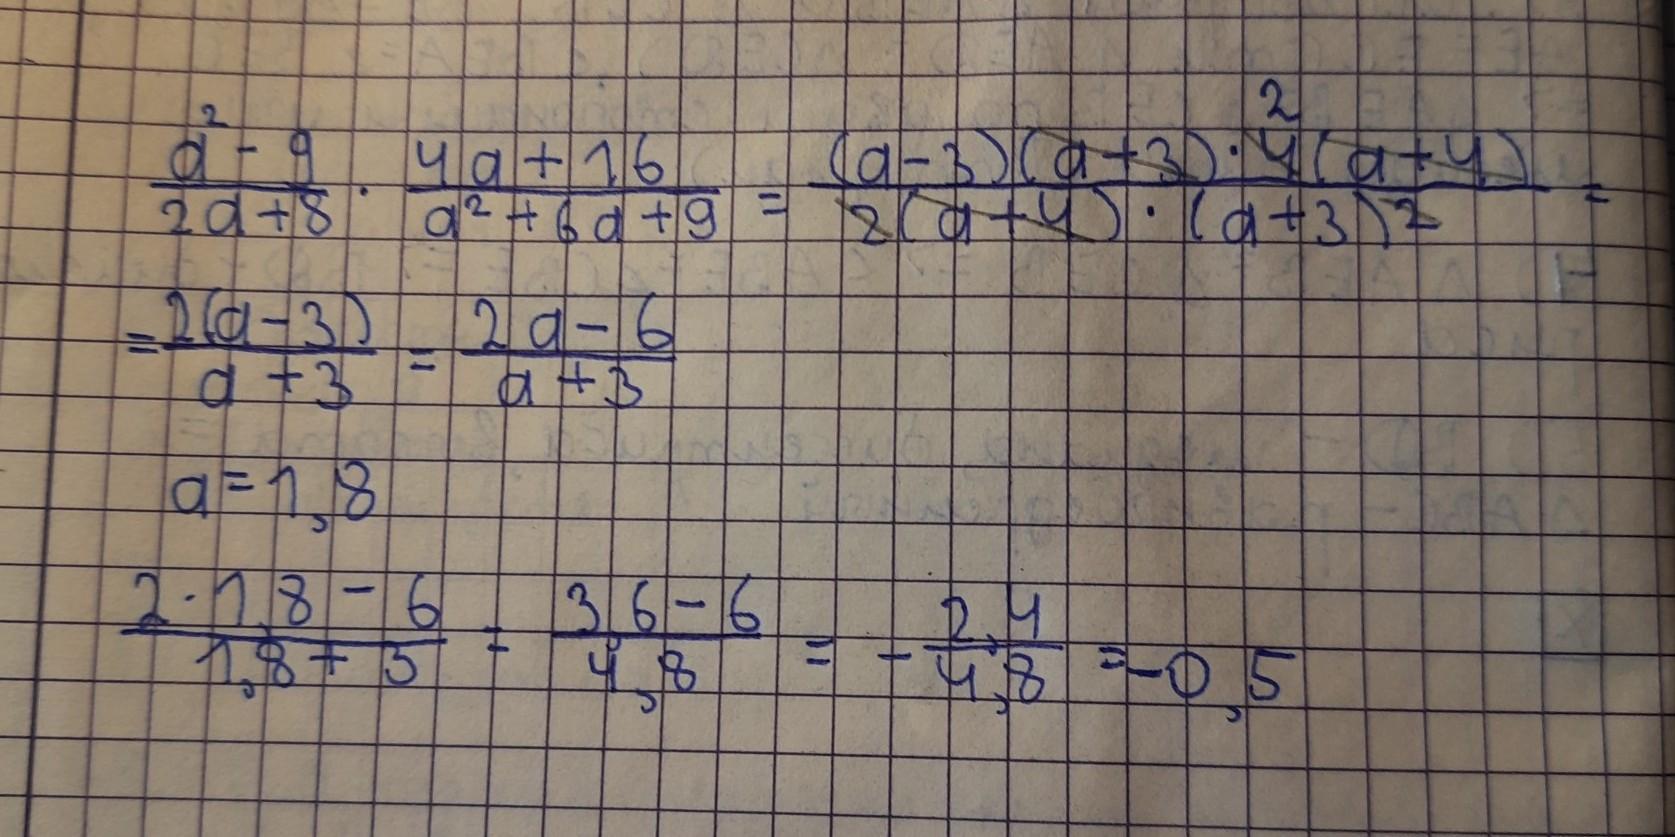 (a² - 9)/(2a+8) · (4a+16)/(a²+6a+9) = ((a-3)(a+3)·4(a+4))/(2(a+4)·(a+3)²) =
2
= 2(a-3)/(a+3) = (2a-6)/(a+3)
a=1,8
(2·1,8-6)/(1,8+3) = (3,6-6)/4,8 = -2,4/4,8 = -0,5